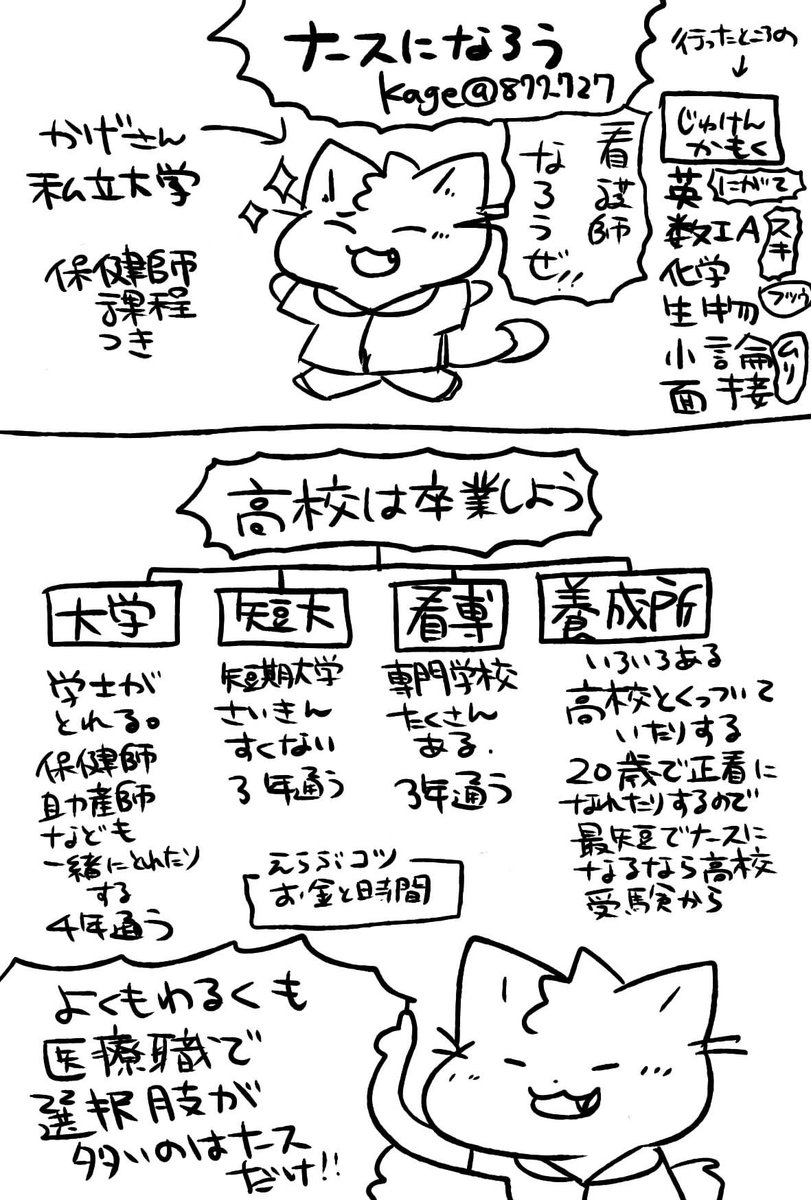 ナースになろう
kage@877727
行ったところの
↓
じゅけん
かもく
英 にがて
数ⅠA スキ
化学
生物 フツウ
小論 ムリ
面接
看護師
なろうぜ!!
かげさん
私立大学
保健師
課程
つき
高校は卒業しよう
大学
学士が
とれる。
保健師
助産師
なども
一緒にとれたり
する
4年通う
短大
短期大学
さいきん
すくない
3年通う
看専
専門学校
たくさん
ある.
3年通う
養成所
いろいろある
高校とくっついて
いたりする
20歳で正看に
なれたりするので
最短でナースに
なるなら高校
受験から
えらぶコツ
お金と時間
よくもわるくも
医療職で
選択肢が
多いのはナース
だけ!!